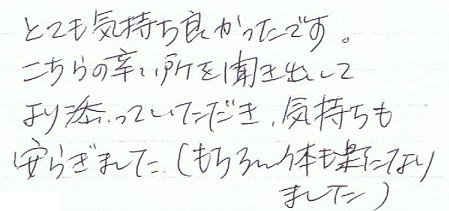 とても気持ち良かったです。
こちらの辛い所を聞き出して
より添っていただき、気持ちも
安らぎました（もちろん体も楽になり
ました）